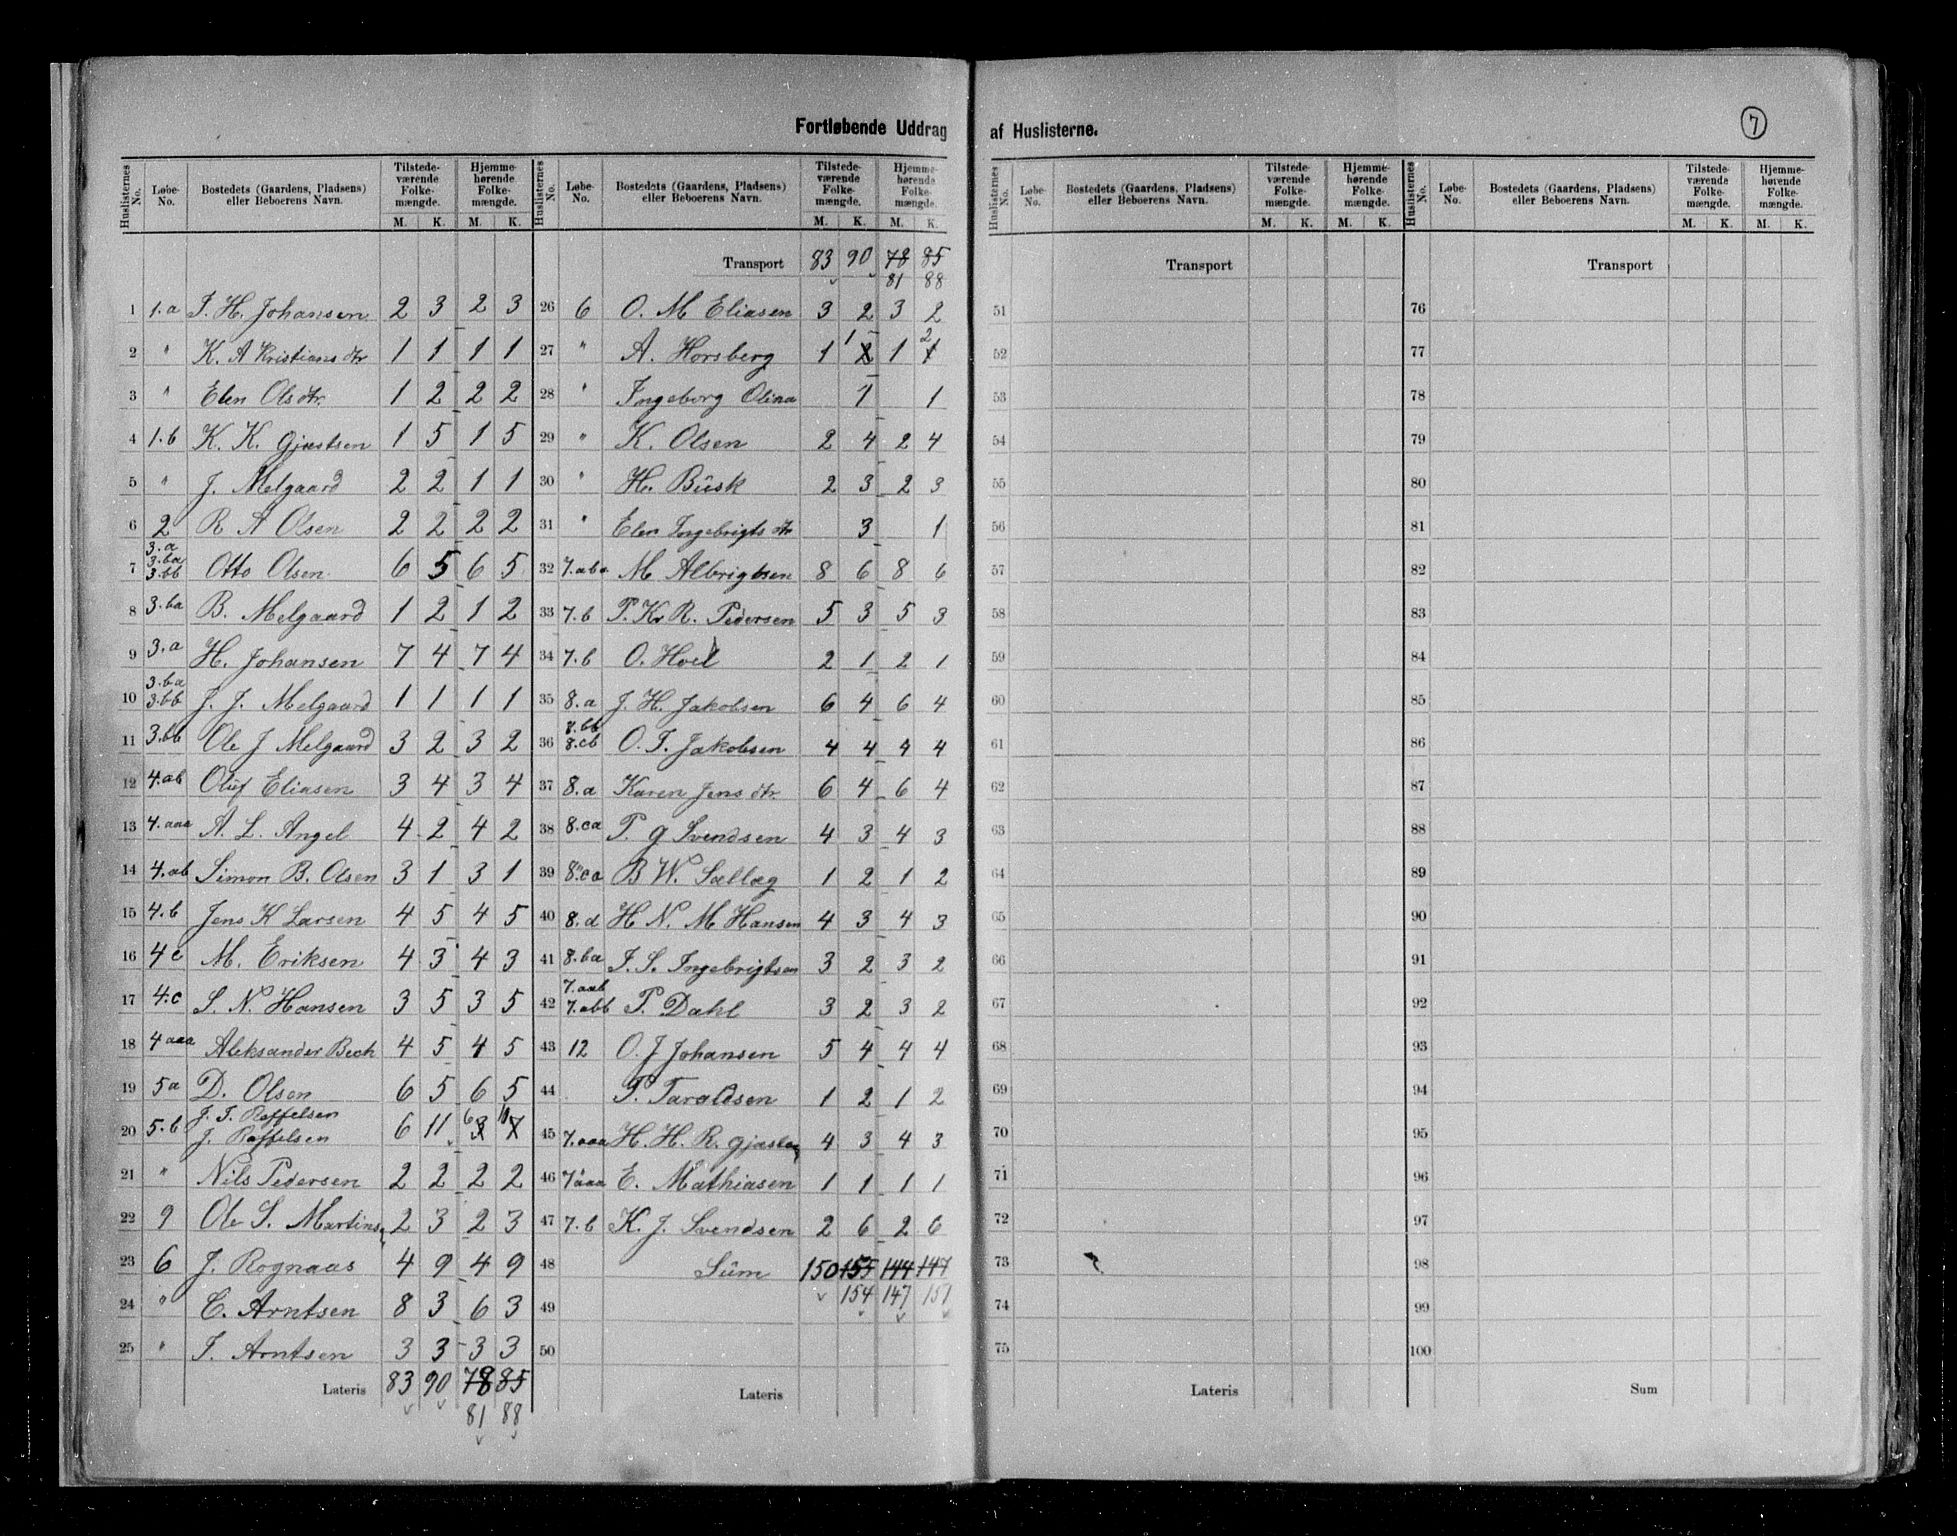 Fortløbende Uddrag af Huslisterne.
7
Huslisternes No. Løbe-No. Bostedets (Gaardens, Pladsens) eller Beboerens Navn. Tilstede-værende Folke-mængde. M. K. Hjemme-hørende Folke-mængde. M. K.
1 1.a J. H. Johansen 2 3 2 3
2 " K. A Kristians dtr 1 1 1 1
3 " Elen Ols dtr. 1 2 2 2
4 1.b K. K. Gjæstsen 1 5 1 5
5 " J. Melgaard 2 2 1 1
6 2 R A Olsen 2 2 2 2
7 3.a 3.ba 3.bb Otto Olsen 6 5 6 5
8 3.ba B. Melgaard 1 2 1 2
9 3.a H. Johansen 7 4 7 4
10 3.ba 3.bb J. J. Melgaard 1 1 1 1
11 3.bb Ole J Melgaard 3 2 3 2
12 4.ab Oluf Eliasen 3 4 3 4
13 4.aaa A. L. Angel 4 2 4 2
14 4.ab Simon B. Olsen 3 1 3 1
15 4.b Jens K Larsen 4 5 4 5
16 4c M. Eriksen 4 3 4 3
17 4.c S. N. Hansen 3 5 3 5
18 4aaa Aleksander Bech 4 5 4 5
19 5a D. Olsen 6 5 6 5
20 5.b J. T. Raffelsen J. Raffelsen 6 11 6 3 10 7
21 " Nils Pedersen 2 2 2 2
22 9 Ole S. Martins 2 3 2 3
23 6 J. Rognaas 4 9 4 9
24 " C. Arntsen 8 3 6 3
25 " J. Arntsen 3 3 3 3
Lateris 83 90 78 85
81 88
Huslisternes No. Løbe-No. Bostedets (Gaardens, Pladsens) eller Beboerens Navn. Tilstede-værende Folke-mængde. M. K. Hjemme-hørende Folke-mængde. M. K.
Transport 83 90 78 85
81 88
26 6 O. M Eliasen 3 2 3 2
27 " A. Horsberg 1 1 2 1 2 1
28 " Ingeborg Olina 1 1
29 " K. Olsen 2 4 2 4
30 " H. Busk 2 3 2 3
31 " Elen Ingebrigts dtr 3 1
32 7.aba M Albrigtsen 8 6 8 6
33 7.b P. Kr R. Pedersen 5 3 5 3
34 7.b O. Hoel 2 1 2 1
35 8.a J. H. Jakobsen 6 4 6 4
36 8.bb 8.cb O. T. Jakobsen 4 4 4 4
37 8.a Karen Jens dtr. 6 4 6 4
38 8.ca P. G Svendsen 4 3 4 3
39 8.ca B W. Sællæg 1 2 1 2
40 8.d H N. M Hansen 4 3 4 3
41 8.ba J. S. Ingebrigtsen 3 2 3 2
42 7.aab 7.abb P. Dahl 3 2 3 2
43 12 O. J Johansen 5 4 4 4
44 P. Taraldsen 1 2 1 2
45 7.aaa H. H. R. Gjæsla 4 3 4 3
46 7aaa E. Mathiasen 1 1 1 1
47 7.b K. J. Svendsen 2 6 2 6
48 Sum 150 155 144 147
154 147 151
49
50
Lateris
Huslisternes No. Løbe-No. Bostedets (Gaardens, Pladsens) eller Beboerens Navn. Tilstede-værende Folke-mængde. M. K. Hjemme-hørende Folke-mængde. M. K.
Transport
51
52
53
54
55
56
57
58
59
60
61
62
63
64
65
66
67
68
69
70
71
72
73
74
75
Lateris
Huslisternes No. Løbe-No. Bostedets (Gaardens, Pladsens) eller Beboerens Navn. Tilstede-værende Folke-mængde. M. K. Hjemme-hørende Folke-mængde. M. K.
Transport
76
77
78
79
80
81
82
83
84
85
86
87
88
89
90
91
92
93
94
95
96
97
98
99
100
Sum